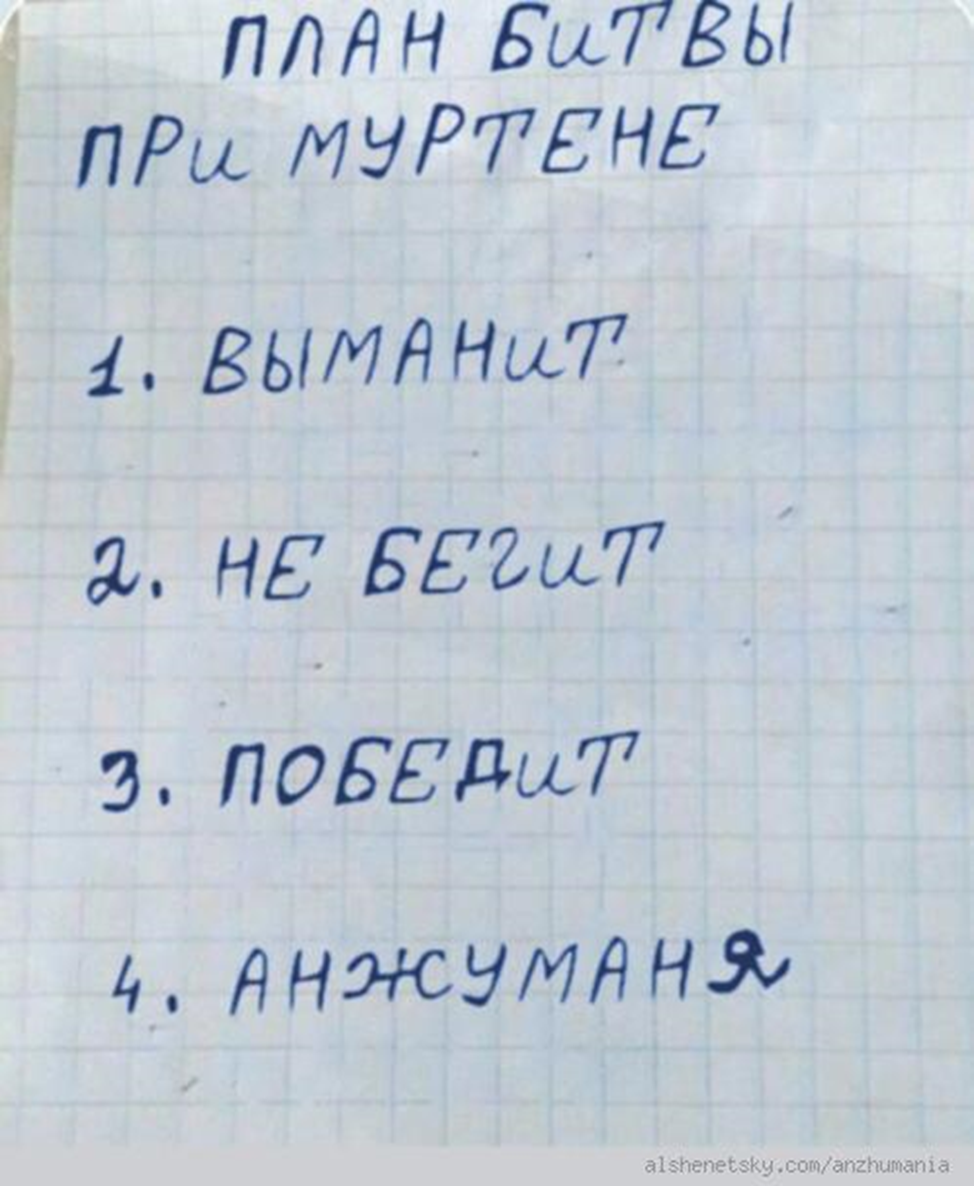 ПЛАН БИТВЫ
ПРИ МУРТЕНЕ
1. ВЫМАНИТ
2. НЕ БЕГИТ
3. ПОБЕДИТ
4. АНЖУМАНЯ
alshenetsky.com/anzhumania